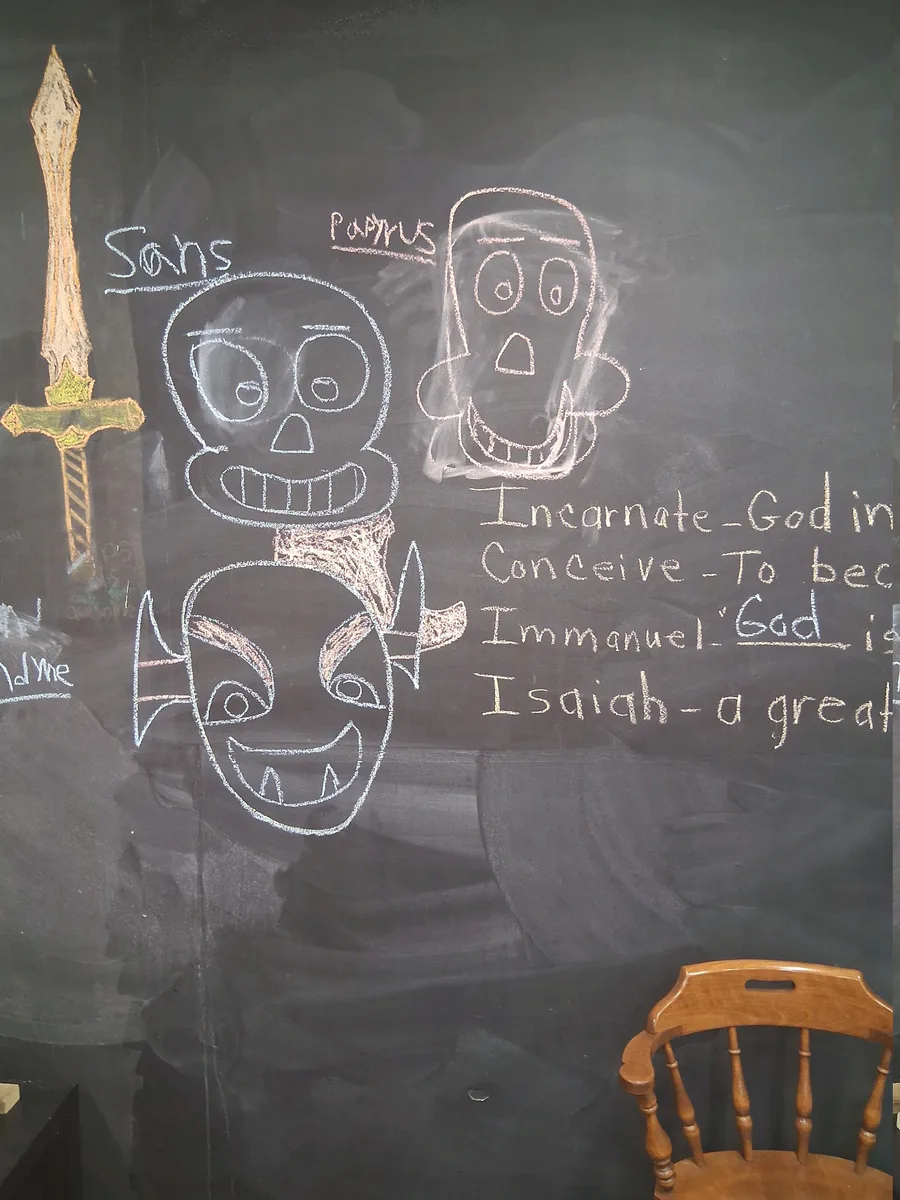 Sans
Papyrus
Incarnate - God in
Conceive - To bec
Immanuel - "God is
Isaiah - a great
ndyne